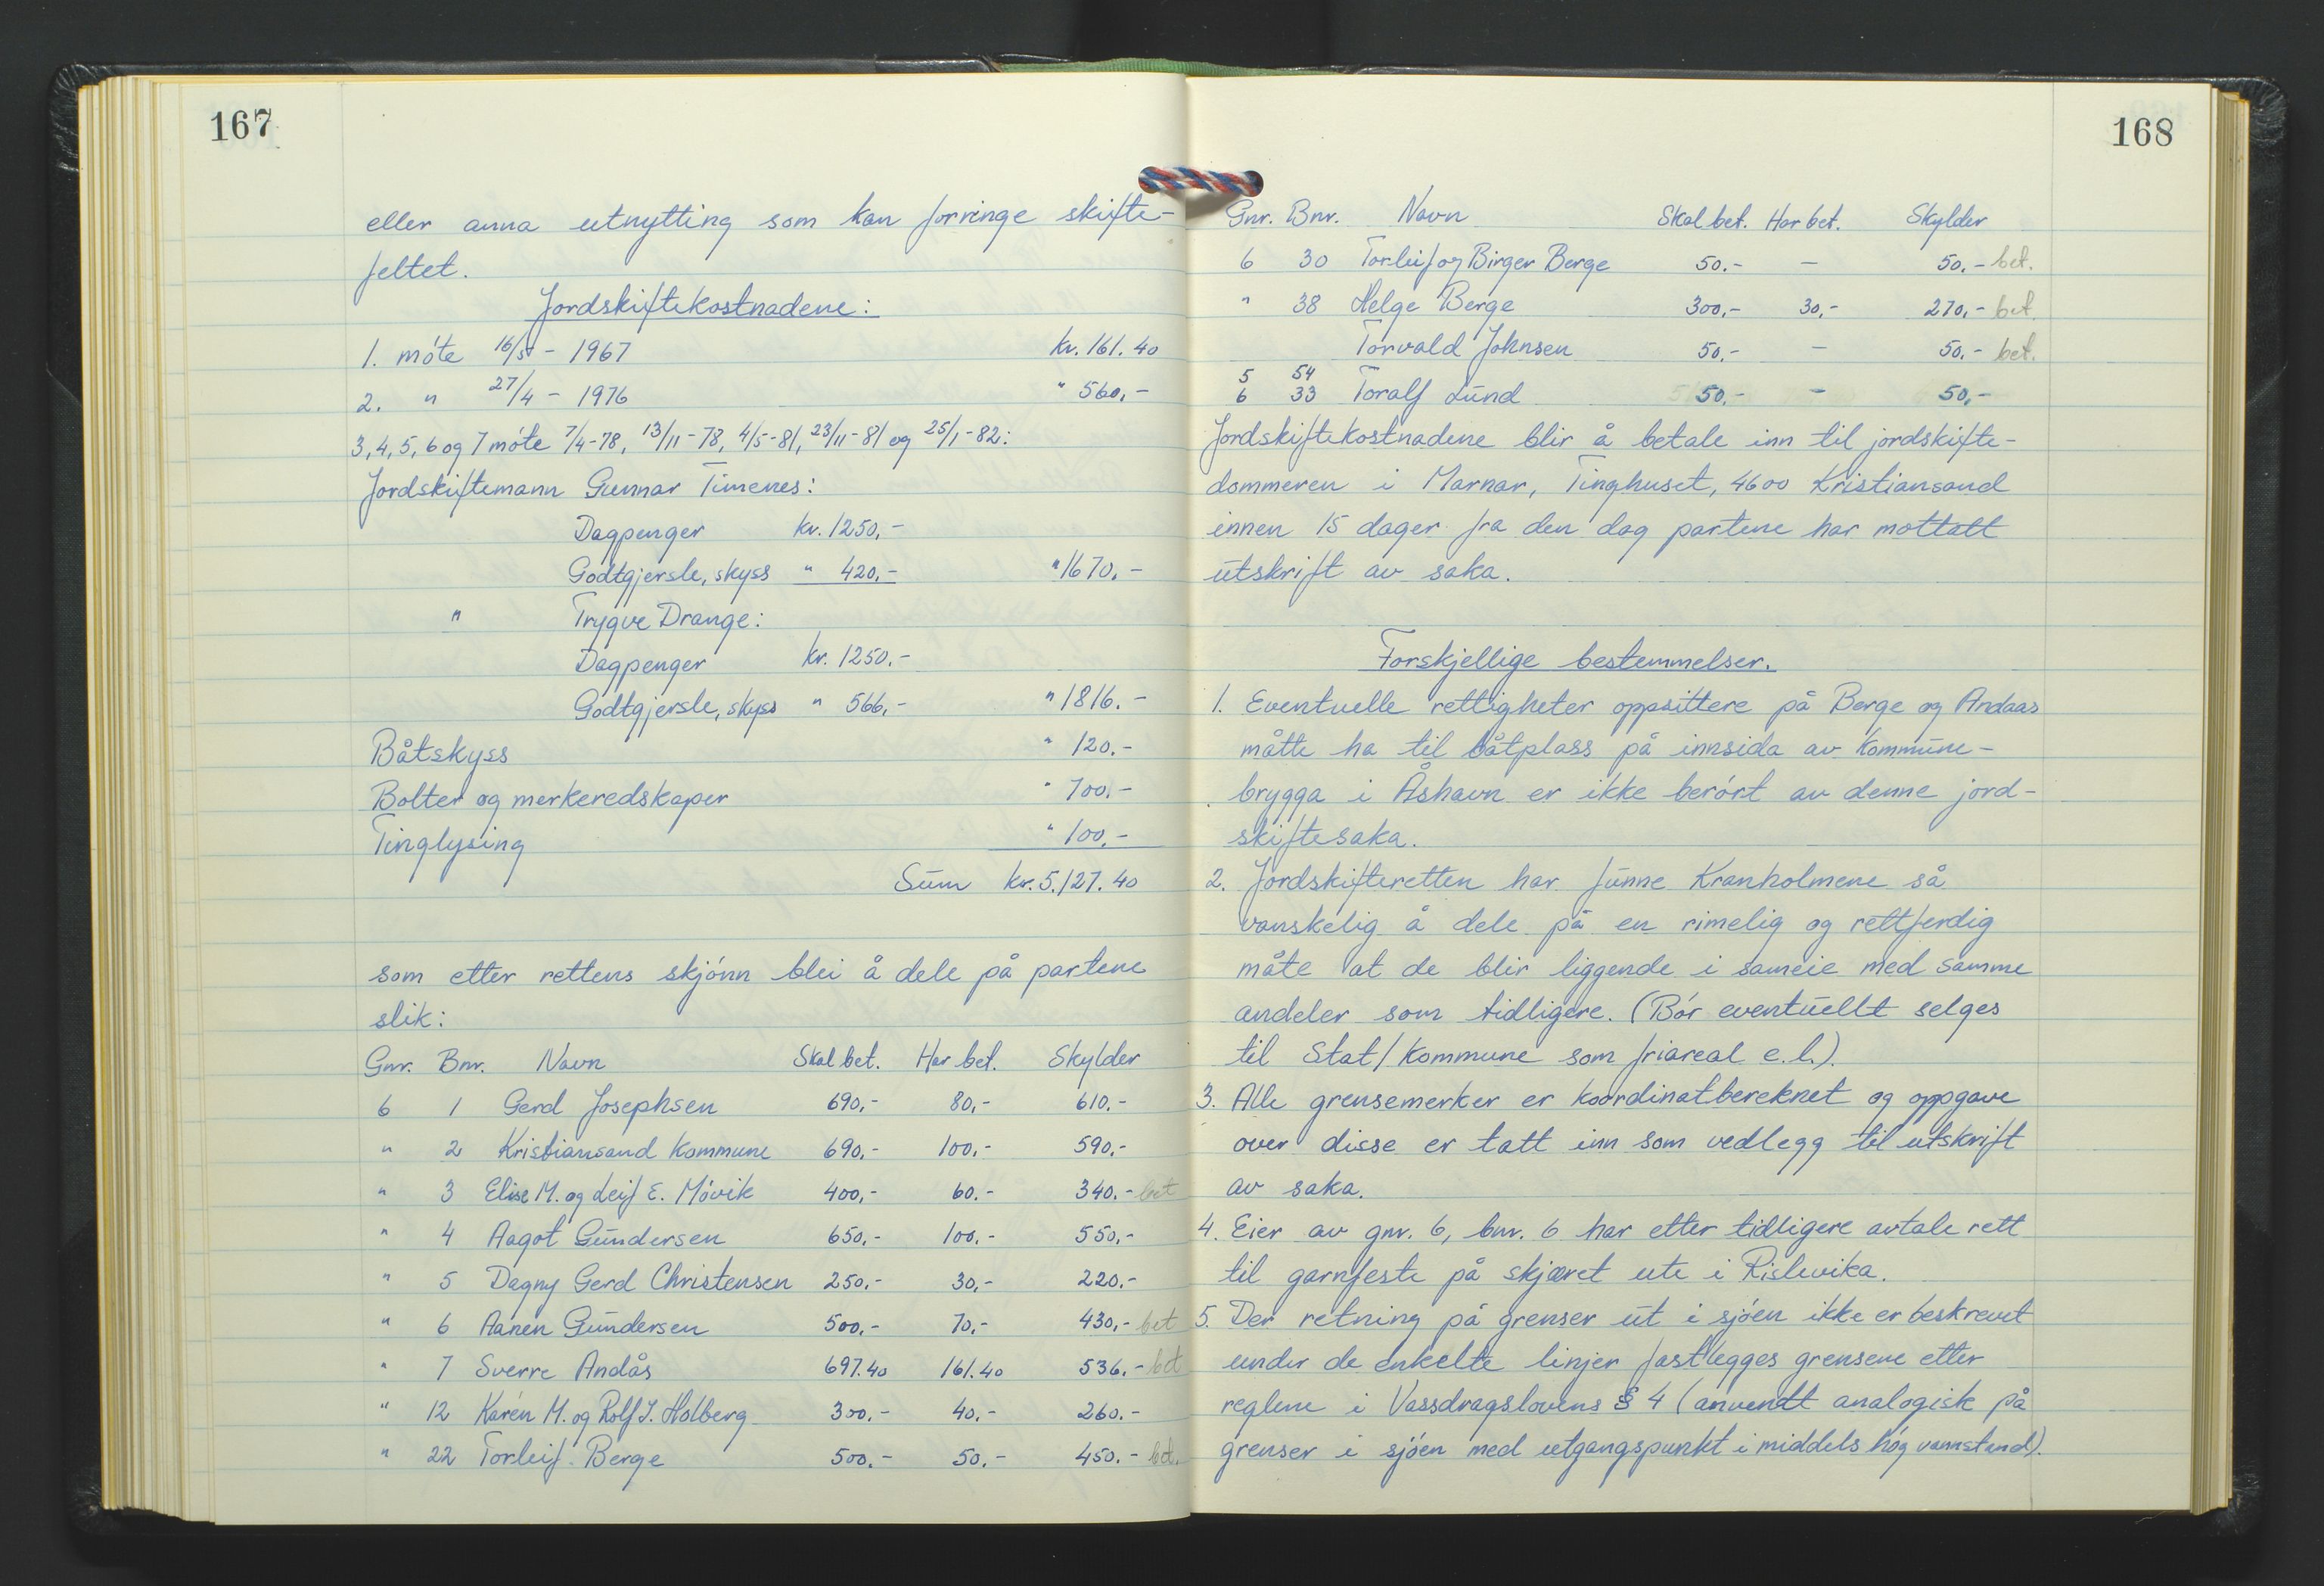 167
eller anna utnytting som kan forringe skifte-
feltet.
Jordskiftekostnadene:
1. møte 16/5 - 1967 kr. 161.40
2. " 27/4 - 1976 " 560,-
3, 4, 5, 6 og 7 møte 7/4-78, 13/11-78, 4/5-81, 23/11-81 og 25/1-82:
Jordskiftemann Gunnar Timenes:
Dagpenger kr. 1250,-
Godtgjersle, skyss " 420,- " 1670,-
" Trygve Drange:
Dagpenger kr. 1250.-
Godtgjersle, skyss " 566,- " 1816.-
Båtskyss " 120.-
Bolter og merkeredskaper " 700,-
Tinglysing " 100,-
Sum kr. 5.127.40
som etter rettens skjønn blei å dele på partene
slik:
Gnr. Bnr. Navn Skal bet. Har bet. Skylder
6 1 Gerd Josephsen 690,- 80,- 610.-
" 2 Kristiansand kommune 690,- 100,- 590,-
" 3 Elise M. og Leif E. Møvik 400,- 60.- 340.- bet
" 4 Aagot Gundersen 650,- 100,- 550,-
" 5 Dagny Gerd Christensen 250,- 30,- 220.-
" 6 Aanen Gundersen 500,- 70,- 430,- bet
" 7 Sverre Andås 697.40 161.40 536.- bet
" 12 Karen M. og Rolf J. Holberg 300,- 40,- 260.-
" 22 Torleif Berge 500.- 50.- 450.- bet.
168
Gnr. Bnr. Navn Skal bet. Har bet. Skylder
6 30 Torleif og Birger Berge 50.- - 50,- bet.
" 38 Helge Berge 300,- 30,- 270,- bet.
Torvald Johnsen 50,- - 50,- bet.
5 54
6 33 Toralf Lund 50,- - 50,-
Jordskiftekostnadene blir å betale inn til jordskifte-
dommeren i Marnar, Tinghuset, 4600 Kristiansand
innen 15 dager fra den dag partene har mottatt
utskrift av saka.
Forskjellige bestemmelser.
1. Eventuelle rettigheter oppsittere på Berge og Andaas
måtte ha til båtplass på innsida av kommune-
brygga i Åshavn er ikke berørt av denne jord-
skiftesaka.
2. Jordskifteretten har funne Kranholmene så
vanskelig å dele på en rimelig og rettferdig
måte at de blir liggende i sameie med samme
andeler som tidligere. (Bør eventuellt selges
til Stat/kommune som friareal e.l.).
3. Alle grensemerker er koordinatbereknet og oppgave
over disse er tatt inn som vedlegg til utskrift
av saka.
4. Eier av gnr. 6, bnr. 6 har etter tidligere avtale rett
til garnfeste på skjæret ute i Rislevika.
5. Der retning på grenser ut i sjøen ikke er beskrevet
under de enkelte linjer fastlegges grensene etter
reglene i Vassdragslovens § 4 (anvendt analogisk på
grenser i sjøen med utgangspunkt i middels høg vannstand).